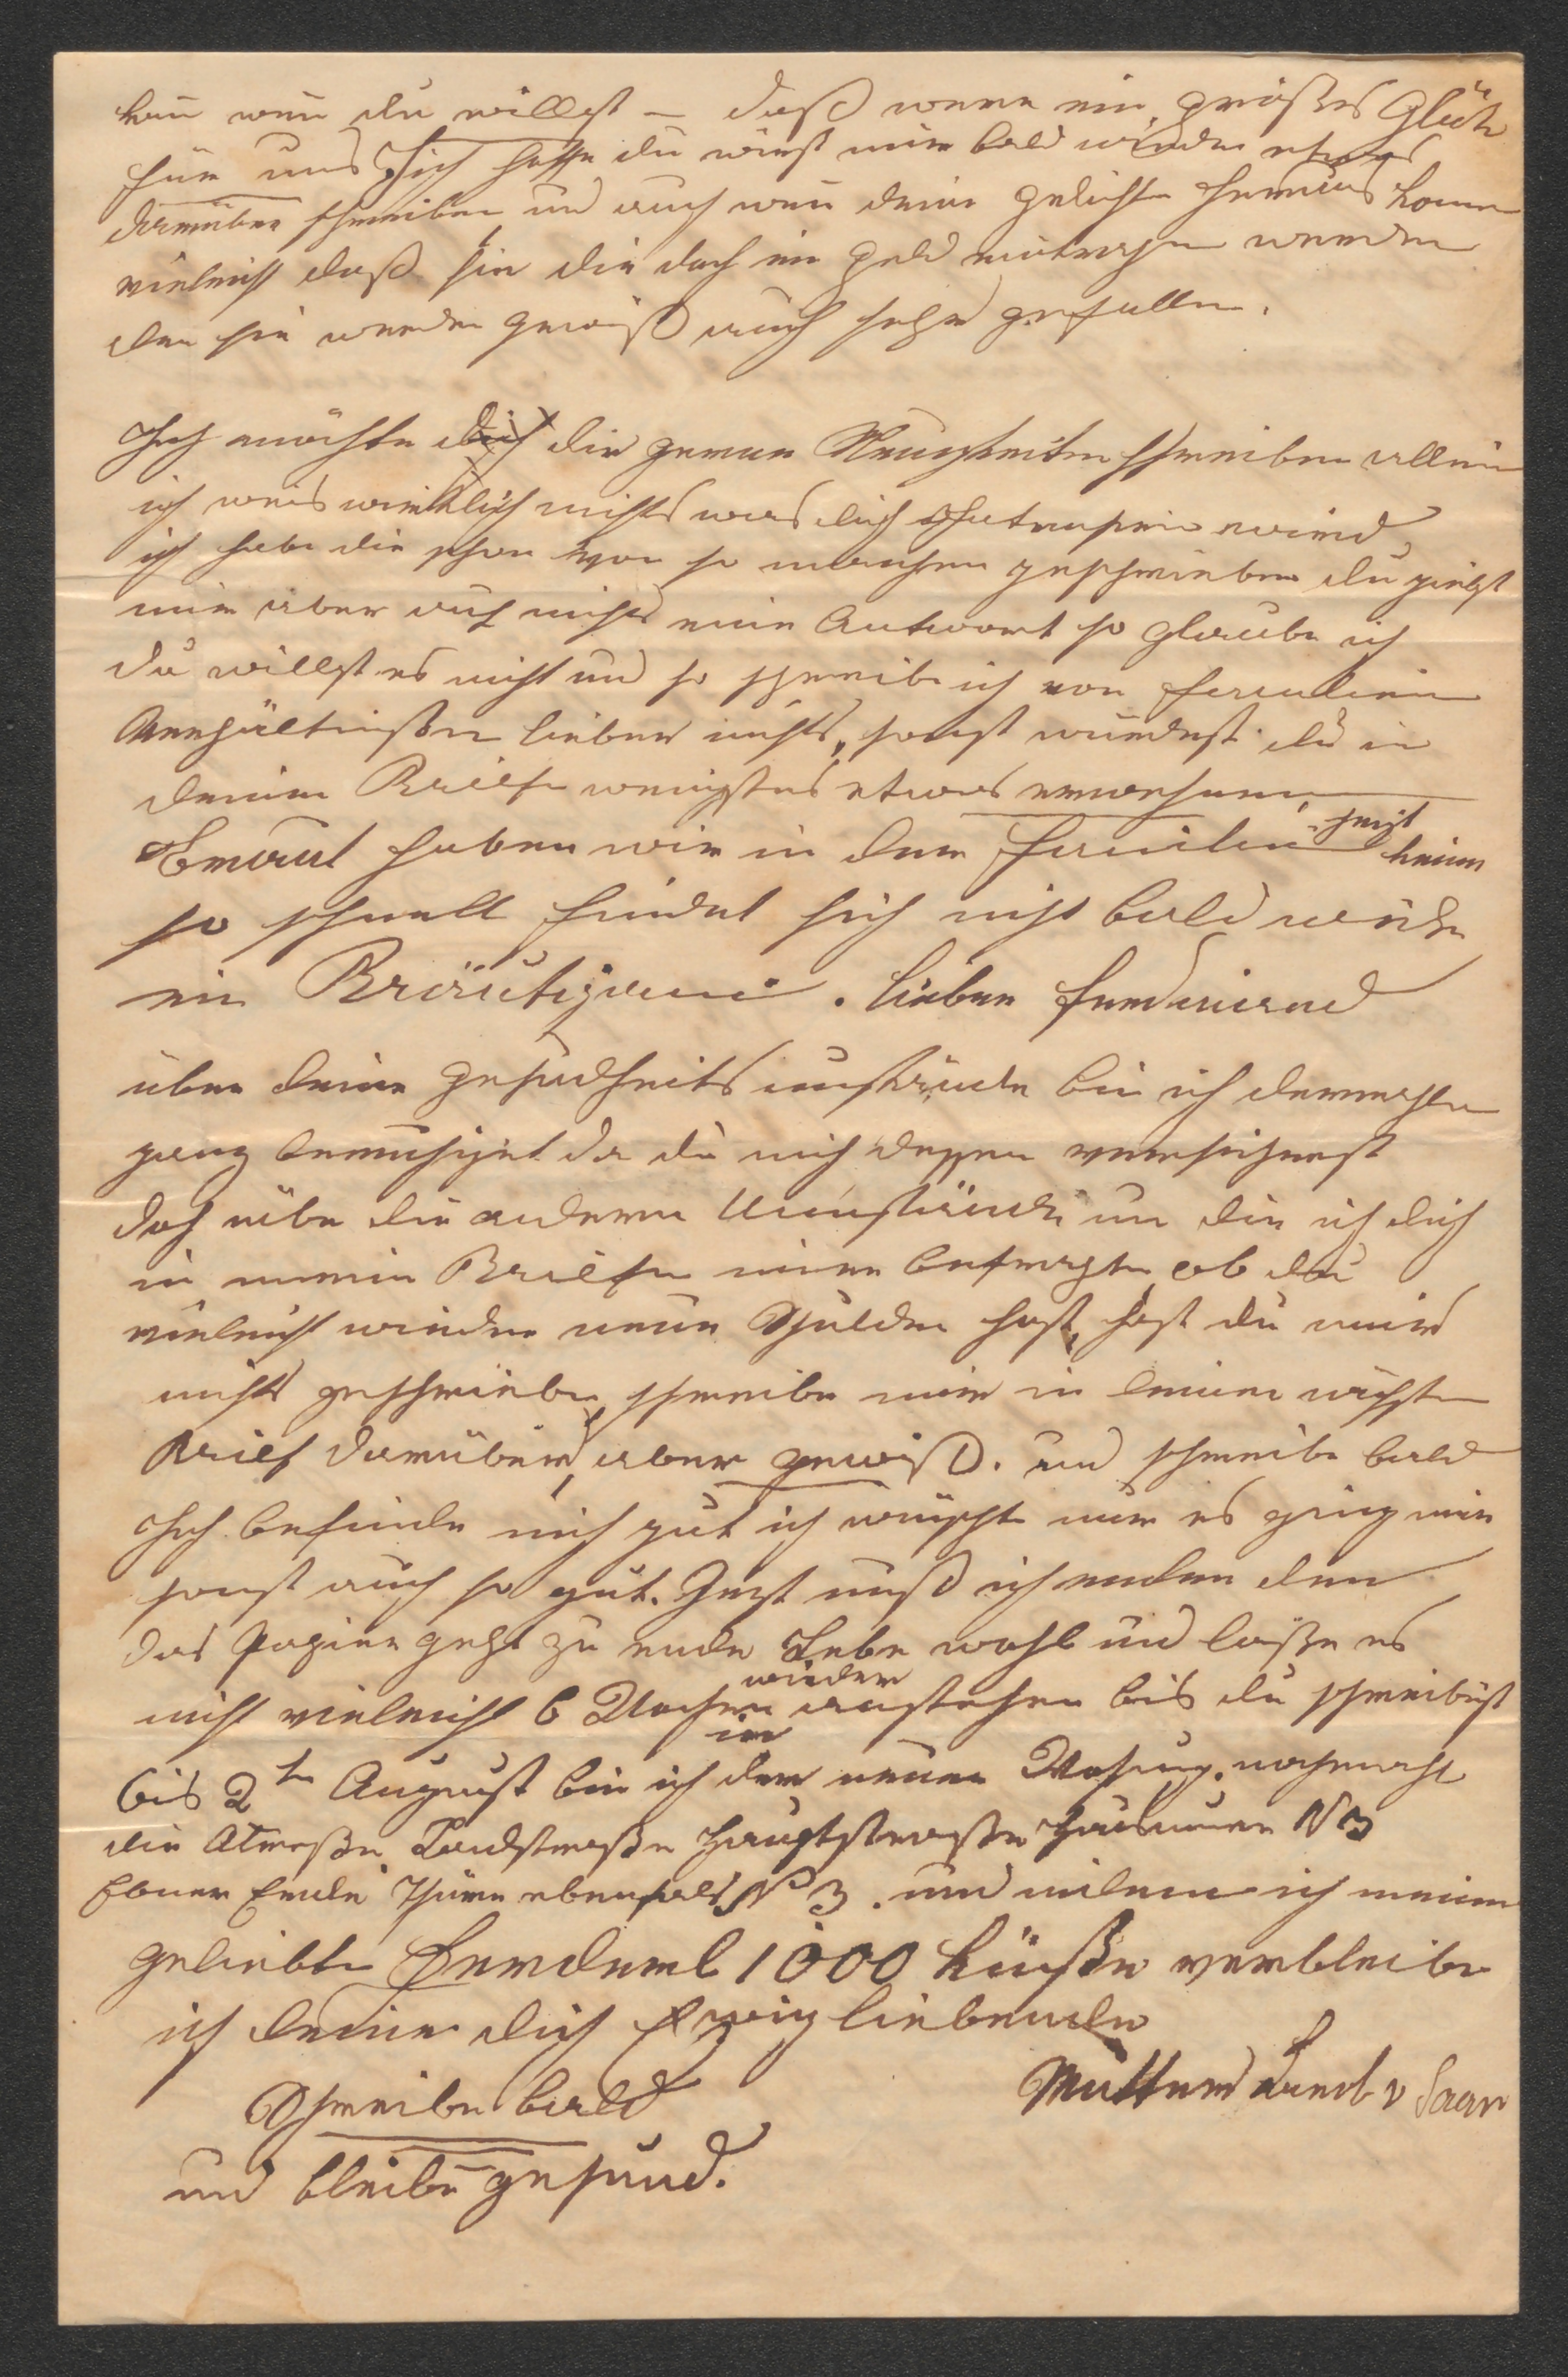 kan wen du willst — daß were ein großes Glück
für uns Ich hoffe du wirst mir bald wieder etwas
darüber schreiben, und auch wen deine Gedichte heraus komen
vieleicht daß sie dir doch ein Geld eintragen werden
den sie werden gewiß auch sehr gefallen.
Ich möchte dich dir gerne Neuigkeiten schreiben allein
ich weis wirklich nichts was dich intresiren wird,
ich habe dir schon von so manchen geschrieben du giebst
mir aber auf nichts eine Antwort so glaube ich
du willst es nicht und so schreibe ich von familien
Verhältnißen lieber nichts, sonst würdest du in
deinen Briefe wenigstens etwas erwehnen,
Braut haben wir in der familie jezt keine
so schnell findet sich nicht bald wieder
ein Bräutigam. Lieber Ferdinand
über deine Gesundheits umstände bin ich dermahlen
ganz beruhiget da du mich dessen versicherest
doch über die anderen Umstände um die ich dich
in meinen Briefe immer befragte ob du
vieleicht wieder neue Schulden hast, hast du mir
nichts geschrieben, schreibe mir in deinen nächsten
Brief darüber, aber gewiß. und schreibe bald
Ich befinde mich gut ich wünschte nur es ging mir
sonst auch so gut. Jezt muß ich enden den
das Papier geht zu ende Lebe wohl und laße es
nicht vieleicht 6 Wochen wieder anstehen bis du schreibest
bis 2ten August bin ich in der neuen Wohnung. nochmahl
die Atreße Landstraße Hauptstraße Hausnumer N 3
Ebner Erde Thüre ebenfals N 3. und indem ich meinen
geliebten Ferderl 1000 Küße verbleibe
ich deine dich Ewig liebende
Mutter v Saar
Schreibe bald
und bleibe gesund.